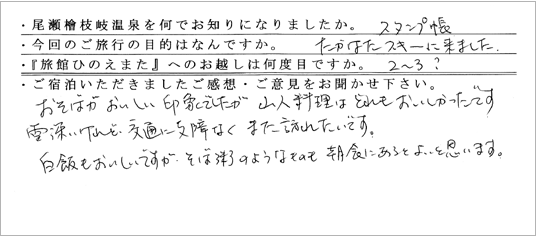 ・尾瀬檜枝岐温泉を何でお知りになりましたか。 スタンプ帳
・今回のご旅行の目的はなんですか。 たかはたスキーに来ました.
・『旅館ひのえまた』へのお越しは何度目ですか。 2～3?
・ご宿泊いただきましたご感想・ご意見をお聞かせ下さい。
おそばがおいしい印象でしたが 山人料理はどれもおいしかったです
雪深いけれど、交通に支障なく また訪れたいです。
白飯もおいしいですが、そば粥のようなものも 朝食にあるとよいと思います。